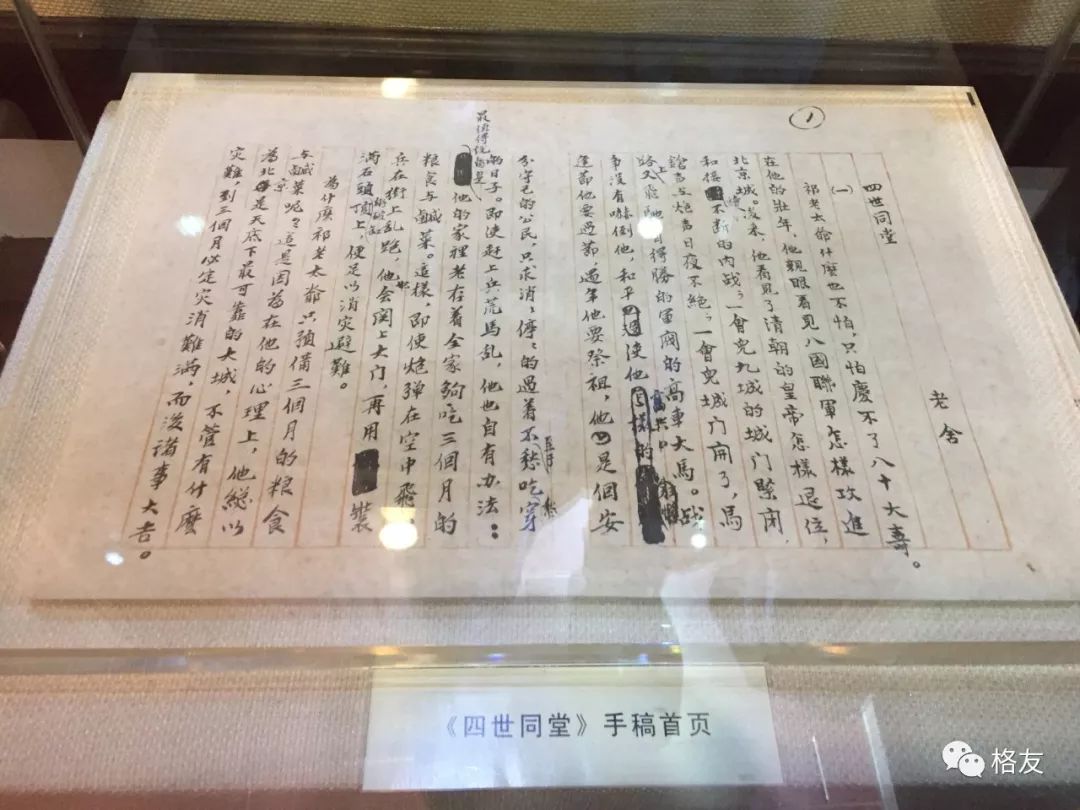 1
四世同堂
老舍
(一)
祁老太爺什麼也不怕,只怕慶不了八十大壽。
在他的壯年,他親眼看見八國聯軍怎樣攻進
北京城。後來,他看見了清朝的皇帝怎樣退位,
和接續不断的内战;一會兒九城的城门緊闭,
鎗声与炮声日夜不絕;一會兒城门開了,馬
路上又飛馳着得勝的軍閥的高車大馬。战
事沒有嚇倒他,和平使他高兴。
逢節他要過節,過年他要祭祖,他是個安
分守己的公民,只求消〻停〻的過着不愁吃穿
的日子。即使赶上兵荒馬乱,他也自有办法:
最值得説的是
他的家裡老存着全家夠吃三個月的
粮食与鹹菜。這樣,即使炮弹在空中飛,
兵在街上乱跑,他也會関上大门,再用裝
满石頭的破缸頂上,便足以消灾避難。
為什麼祁老太爺只預備三個月的粮食
与鹹菜呢?這是因為在他的心理上,他總以
為北京是天底下最可靠的大城,不管有什麼
灾難,到三個月必定灾消難满,而後諸事大吉。
《四世同堂》手稿首页
格友